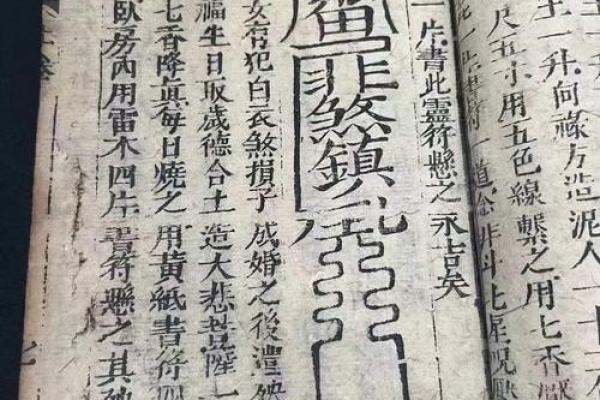 一升向祿方造泥人一十
尺五寸用五色線繫之用七香厭
書符一道念斗七星呪厭
一片書此靈符懸之永吉矣
非煞鎮
女有犯白衣煞損子成婚之後遭殃
福生日取歲德合土造大悲菩薩一
七香降真每日燒之用黃紙書符四
臥房內用雷木四片書符懸之其殃